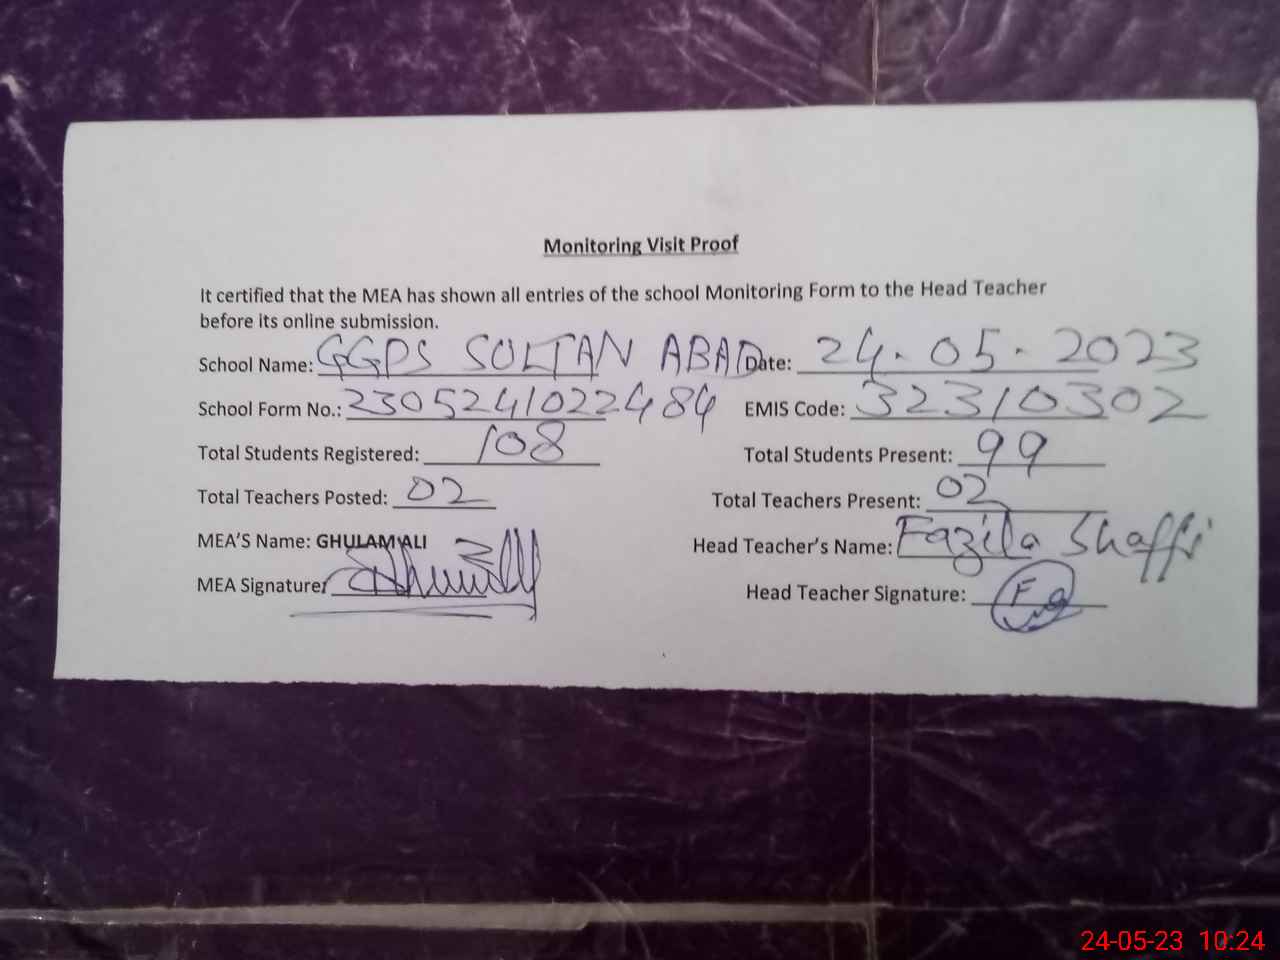 Monitoring Visit Proof
It certified that the MEA has shown all entries of the school Monitoring Form to the Head Teacher
before its online submission.
School Name: GGPS SULTAN ABAD Date: 24.05.2023
School Form No.: 2305241022484 EMIS Code: 32310302
Total Students Registered: 108 Total Students Present: 99
Total Teachers Posted: 02 Total Teachers Present: 02
MEA'S Name: GHULAM ALI Head Teacher's Name: Fazila Shaffi
MEA Signature: Head Teacher Signature:
24-05-23 10:24